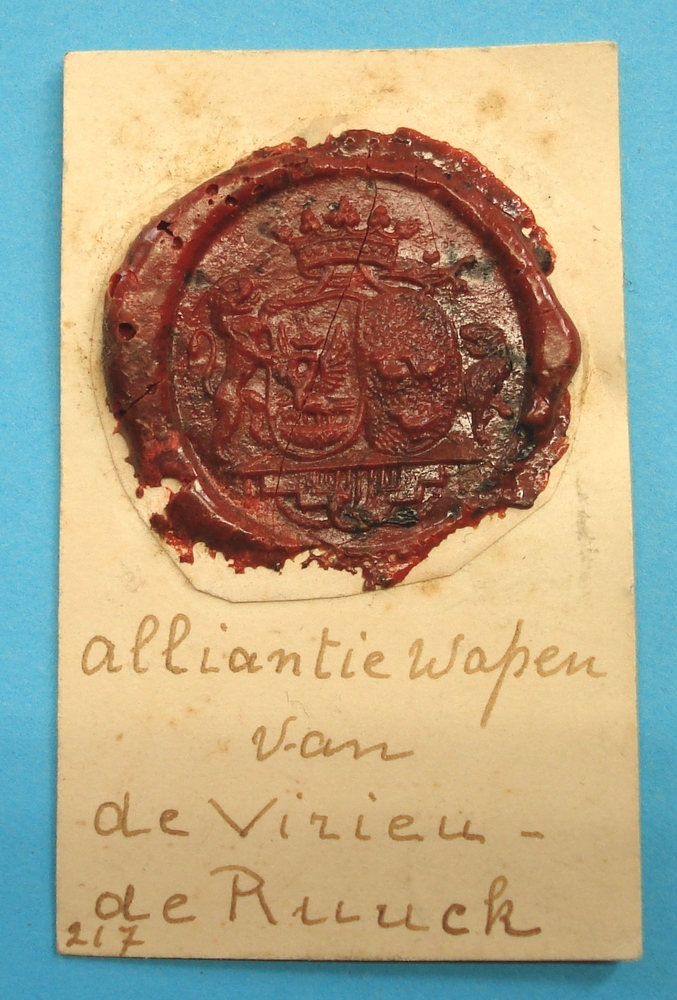 alliantie wapen
van
de Virieu -
de Ruuck
217